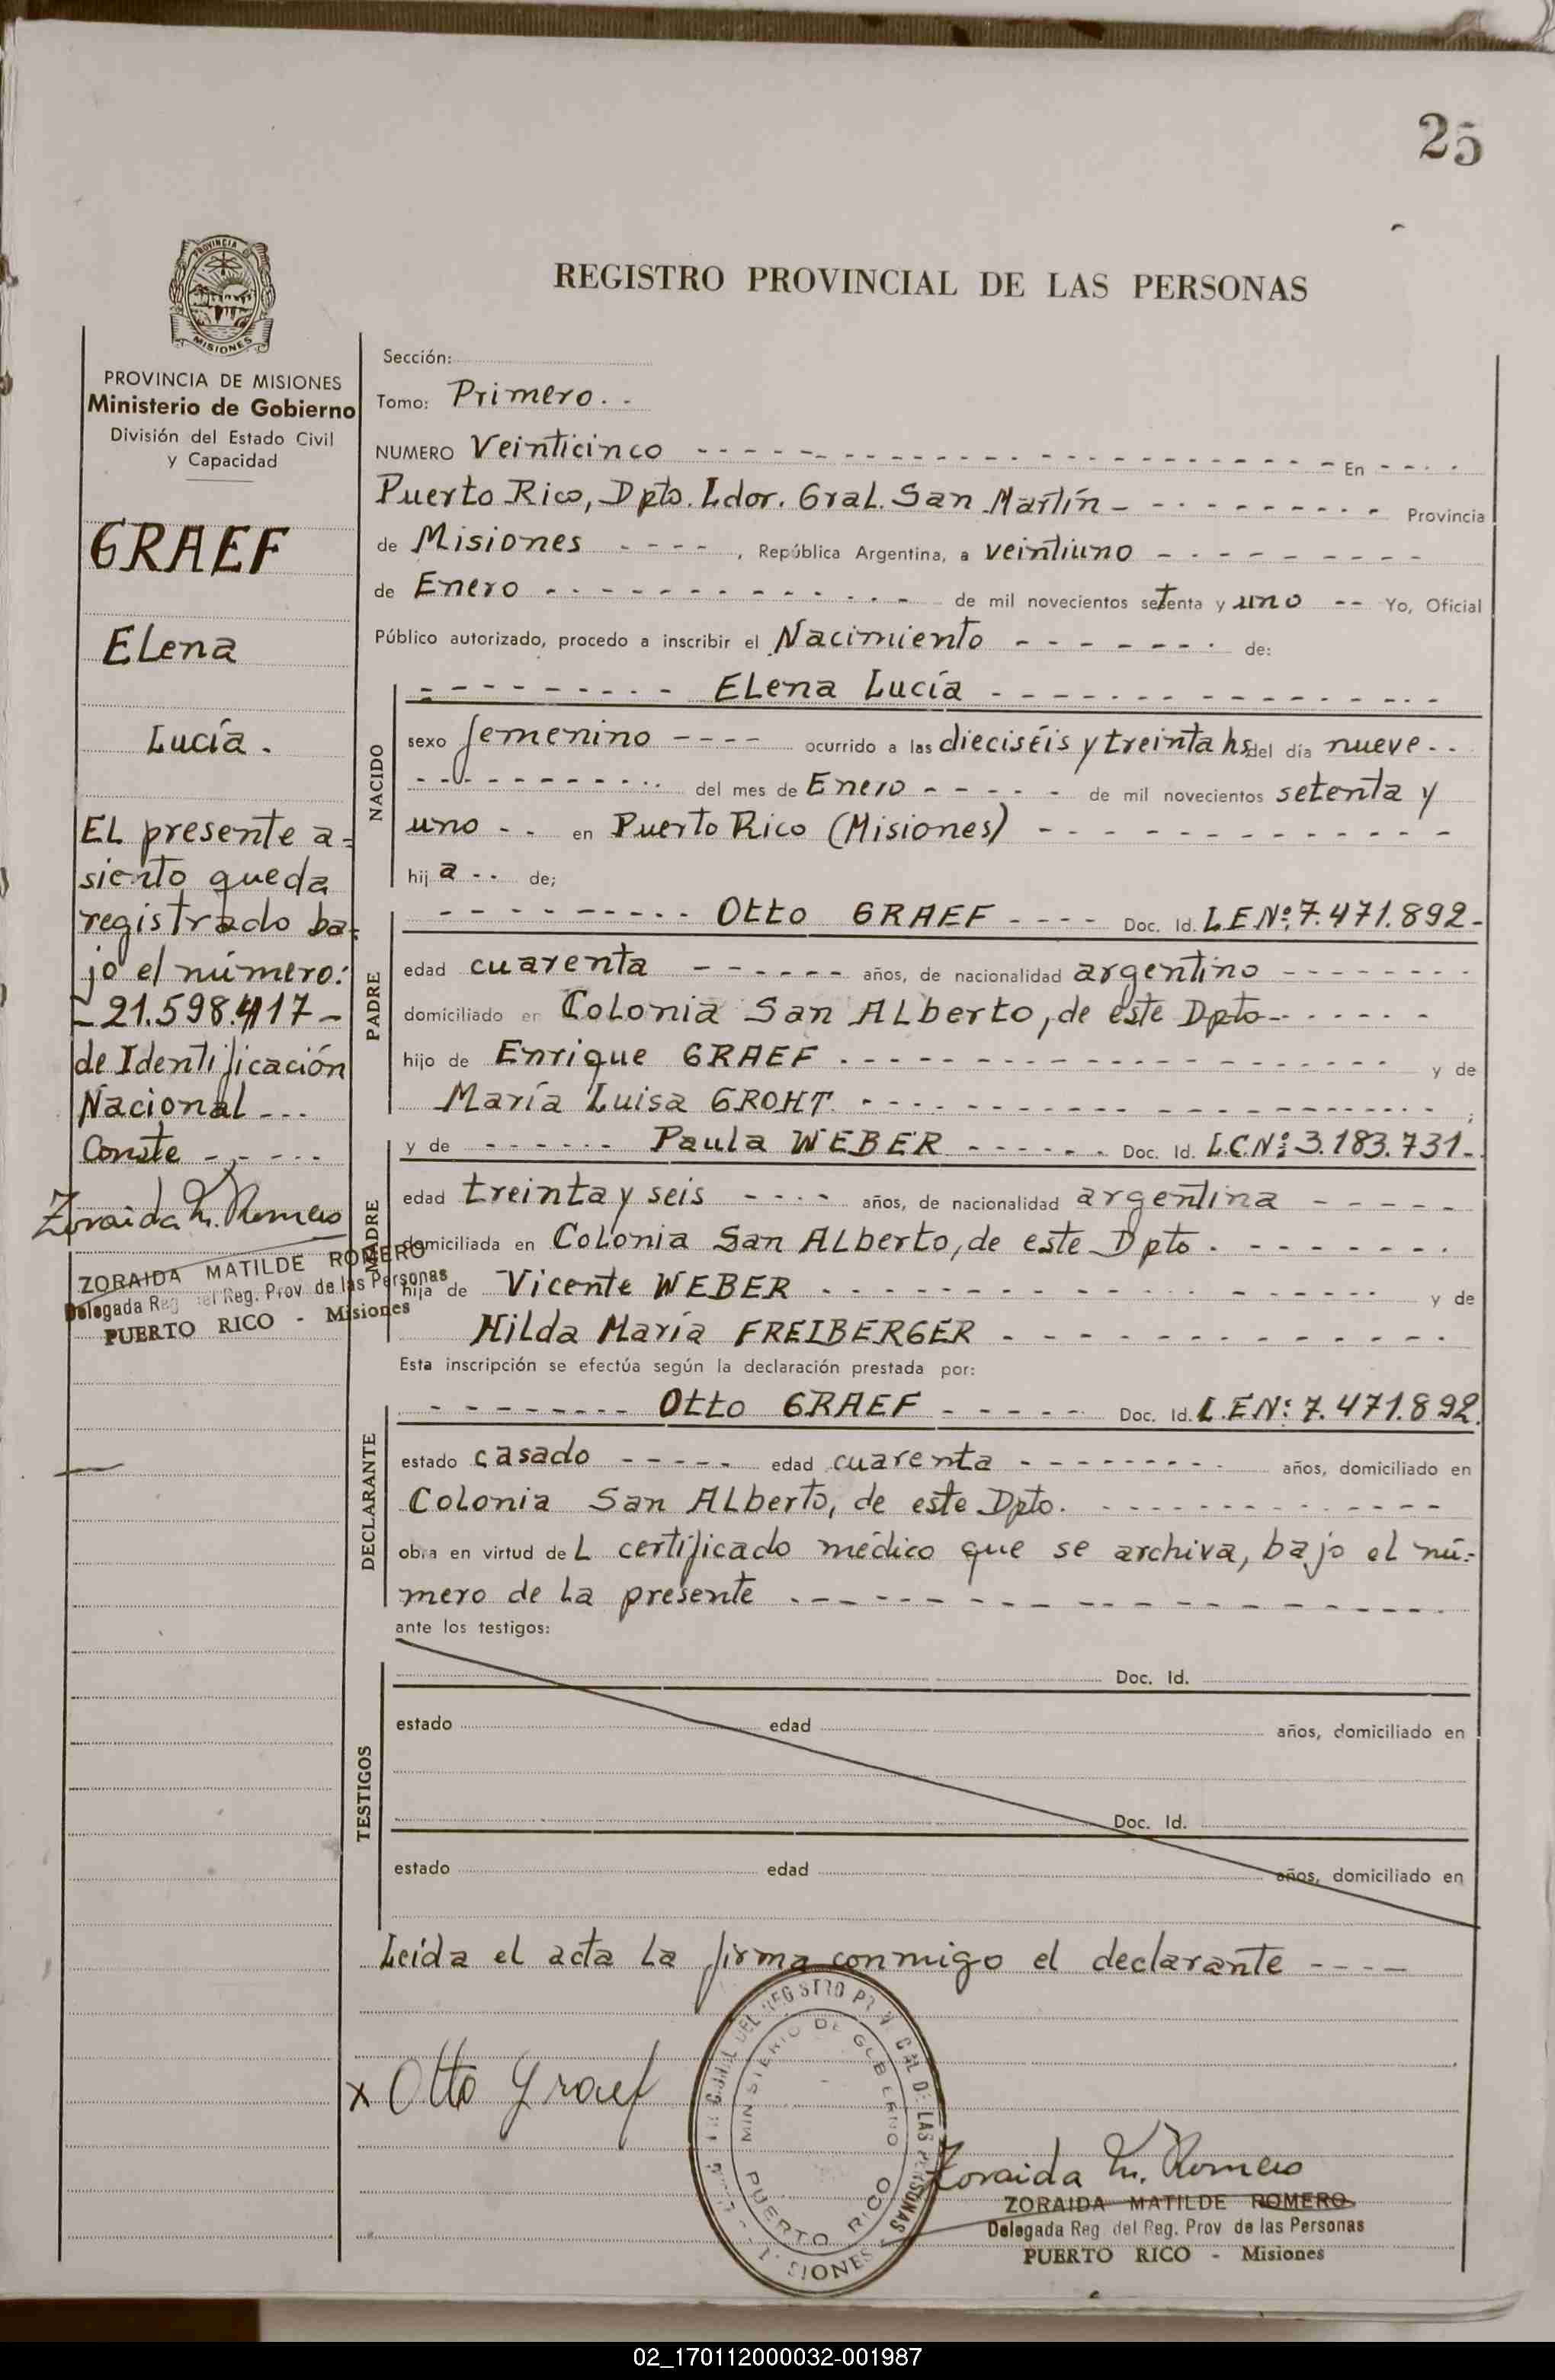 25
PROVINCIA
MISIONES
REGISTRO PROVINCIAL DE LAS PERSONAS
PROVINCIA DE MISIONES
Ministerio de Gobierno
División del Estado Civil
y Capacidad
GRAEF
Elena
Lucía.
El presente a=
siento queda
registrado ba=
jo el número:
- 21.598.417 -
de Identificación
Nacional - - -
Conste - - - - -
Zoraida M. Romero
ZORAIDA MATILDE ROMERO
Delegada Reg. del Reg. Prov. de las Personas
PUERTO RICO - Misiones
Sección:
Tomo: Primero. . -
NUMERO Veinticinco - - - - - - - - En - - - -
Puerto Rico, Dpto. Ldor. Gral. San Martín - - - - - - - - Provincia
de Misiones - - - - , República Argentina, a veintiuno - - - - - - - -
de Enero - - - - - - - - de mil novecientos setenta y uno -- Yo, Oficial
Público autorizado, procedo a inscribir el Nacimiento - - - - - - - de:
- - - - - - - - - Elena Lucía - - - - - - - - - - - -
NACIDO
sexo femenino - - - - ocurrido a las dieciséis y treinta hs del día nueve . .
- - - - - - - - - - del mes de Enero - - - - - de mil novecientos setenta y
uno . . en Puerto Rico (Misiones) - - - - - - - - - - - -
hij a - - de;
PADRE
- - - - - - - - - Otto GRAEF - - - - Doc. Id. L E Nº: 7.471.892 -
edad cuarenta - - - - - - años, de nacionalidad argentino - - - - - - - -
domiciliado en Colonia San Alberto, de este Dpto - - - - - -
hijo de Enrique GRAEF - - - - - - - - - - - - y de
María Luisa GROHT. - - - - - - - - - - - - ;
MADRE
y de - - - - - - Paula WEBER - - - - - - Doc. Id. L.C.Nº: 3.183.731 -
edad treinta y seis - - - - años, de nacionalidad argentina - - - - -
domiciliada en Colonia San Alberto, de este Dpto . - - - - - - -
hija de Vicente WEBER - - - - - - - - - - - - y de
Hilda María FREIBERGER - - - - - - - - - - - -
Esta inscripción se efectúa según la declaración prestada por:
DECLARANTE
- - - - - - - - Otto GRAEF - - - - - Doc. Id. L.E.Nº: 7.471.892.
estado casado - - - - - edad cuarenta - - - - - - - - años, domiciliado en
Colonia San Alberto, de este Dpto. - - - - - - - - - - - -
obra en virtud de L certificado médico que se archiva, bajo el nú=
mero de la presente - - - - - - - - - - - - - - -
ante los testigos:
TESTIGOS
Doc. Id.
estado edad años, domiciliado en
Doc. Id.
estado edad años, domiciliado en
Leída el acta la firma conmigo el declarante - - - -
x Otto Graef
DEL REGISTRO PROVINCIAL DE LAS PERSONAS
MINISTERIO DE GOBIERNO
PUERTO RICO
MISIONES
Zoraida M. Romero
ZORAIDA MATILDE ROMERO
Delegada Reg. del Reg. Prov de las Personas
PUERTO RICO - Misiones
02_170112000032-001987